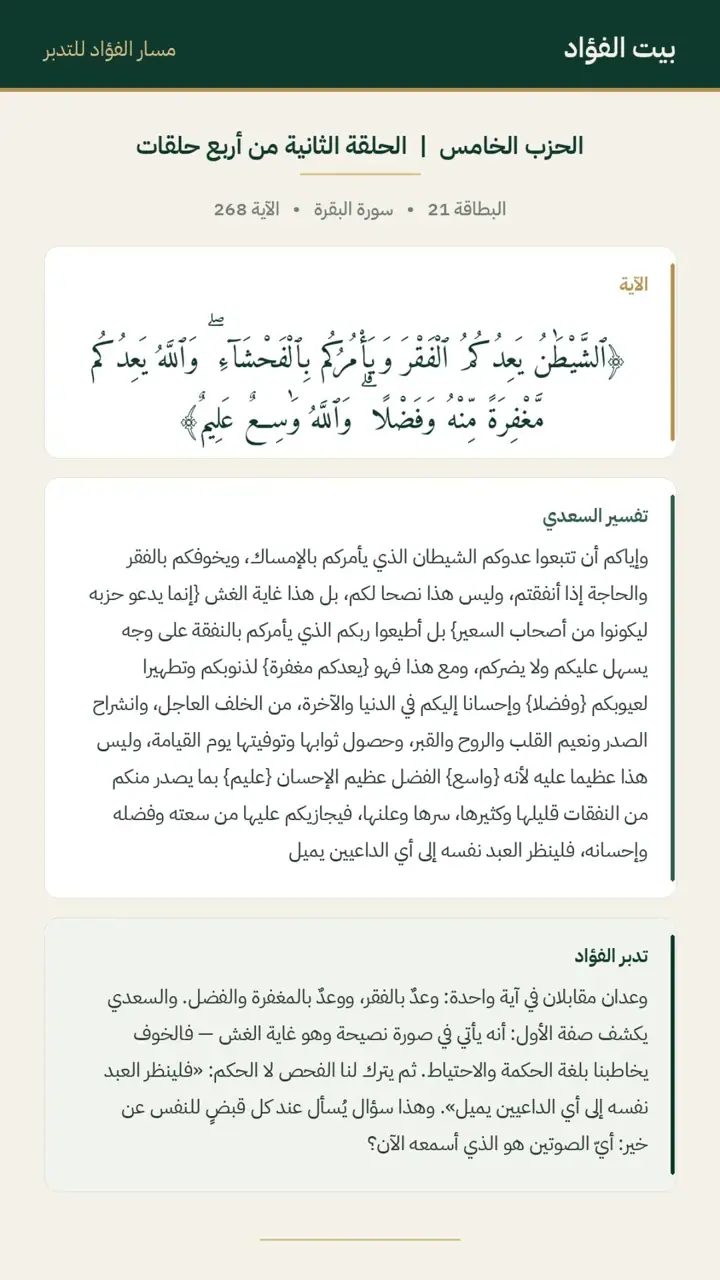 بيت الفؤاد
مسار الفؤاد للتدبر
الحزب الخامس | الحلقة الثانية من أربع حلقات
البطاقة 21 • سورة البقرة • الآية 268
الآية
﴿ٱلشَّيْطَٰنُ يَعِدُكُمُ ٱلْفَقْرَ وَيَأْمُرُكُم بِٱلْفَحْشَآءِ ۖ وَٱللَّهُ يَعِدُكُم
مَّغْفِرَةً مِّنْهُ وَفَضْلًا ۗ وَٱللَّهُ وَٰسِعٌ عَلِيمٌ﴾
تفسير السعدي
وإياكم أن تتبعوا عدوكم الشيطان الذي يأمركم بالإمساك، ويخوفكم بالفقر
والحاجة إذا أنفقتم، وليس هذا نصحا لكم، بل هذا غاية الغش {إنما يدعو حزبه
ليكونوا من أصحاب السعير} بل أطيعوا ربكم الذي يأمركم بالنفقة على وجه
يسهل عليكم ولا يضركم، ومع هذا فهو {يعدكم مغفرة} لذنوبكم وتطهيرا
لعيوبكم {وفضلا} وإحسانا إليكم في الدنيا والآخرة، من الخلف العاجل، وانشراح
الصدر ونعيم القلب والروح والقبر، وحصول ثوابها وتوفيتها يوم القيامة، وليس
هذا عظيما عليه لأنه {واسع} الفضل عظيم الإحسان {عليم} بما يصدر منكم
من النفقات قليلها وكثيرها، سرها وعلنها، فيجازيكم عليها من سعته وفضله
وإحسانه، فلينظر العبد نفسه إلى أي الداعيين يميل
تدبر الفؤاد
وعدان مقابلان في آية واحدة: وعدٌ بالفقر، ووعدٌ بالمغفرة والفضل. والسعدي
يكشف صفة الأول: أنه يأتي في صورة نصيحة وهو غاية الغش — فالخوف
يخاطبنا بلغة الحكمة والاحتياط. ثم يترك لنا الفحص لا الحكم: «فلينظر العبد
نفسه إلى أي الداعيين يميل». وهذا سؤال يُسأل عند كل قبضٍ للنفس عن
خير: أيّ الصوتين هو الذي أسمعه الآن؟